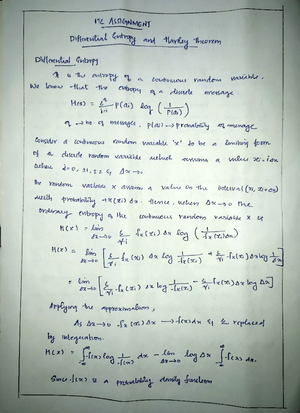 ITC ASSIGNMENT
Differential Entropy and Hartley Theorem
Differential Entropy
It is the entropy of a continuous random variable.
We know that the entropy of a discrete message
H(x) = Σ p(xi) log (1/p(xi))
→ no. of messages, p(xi) → probability of message
Consider a continuous random variable 'x' to be a limiting form
of a discrete random variable which assumes a value
when i=0, ±1, ±2 & Δx→0
The random variable x assumes a value in the interval (xi, xi+Δx)
with probability fx(xi) Δx. Hence, when Δx→0 the
ordinary entropy of the continuous random variable x is
H(x) = lim Δx→0 Σ fx(xi) Δx log (1/fx(xi)Δx)
H(x) = lim Δx→0 [Σ fx(xi) Δx log 1/fx(xi) + Σ fx(xi) Δx log 1/Δx]
= lim Δx→0 [Σ fx(xi) Δx log 1/fx(xi) - Σ fx(xi) Δx log Δx]
Applying the approximation,
As Δx→0 fx(xi) Δx → f(x)dx & Σ replaced
by integration.
H(x) = ∫ f(x) log 1/f(x) dx - lim Δx→0 log Δx ∫ f(x) dx.
Since f(x) is a probability density function